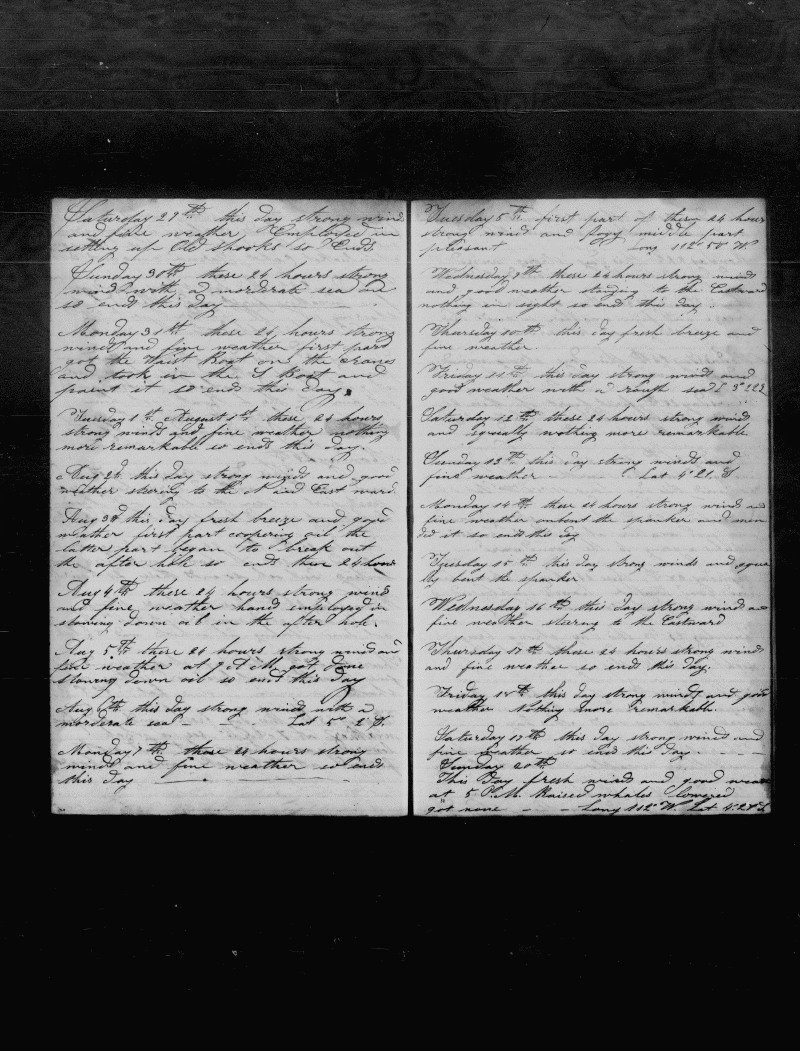 Saturday 29th this day strong wind
and fine weather Employed in
setting up Old Shooks so Ends
Sunday 30th these 24 hours strong
wind with a morderate sea on
so ends this day
Monday 31st these 24 hours strong
winds and fine weather first part
got the Waist Boat on the cranes
and took in the S Boat and
paint it so ends this day.
Tuesday 1st August 1st these 24 hours
strong winds and fine weather nothing
more remarkable so ends this day.
Aug 2d this day strong winds and good
weather steering to the N and East ward
Aug 3d this day fresh breeze and good
weather first part coopering oil the
latter part began to break out
the after hole so ends these 24 hours
Aug 4th these 24 hours strong wind
and fine weather hands employed in
stowing down oil in the after hole.
Aug 5th these 24 hours strong winds and
fine weather at 9 A M got done
stowing down oil so ends this day
Aug 6th this day strong winds with a
morderate sea - Lat 5° 2' S.
Monday 7th these 24 hours strong
winds and fine weather so ends
this day
Tuesday 8th first part of these 24 hours
strong winds and fogy middle part
pleasant Long 112° 50' W.
Wednesday 9th these 24 hours strong winds
and good weather standing to the Eastward
nothing in sight so ends this day.
Thursday 10th this day fresh breeze and
fine weather
Friday 11th this day strong winds and
good weather with a rough sea
Saturday 12th these 24 hours strong winds
and squally nothing more remarkable
Sunday 13th this day strong winds and
fine weather Lat 4° 21, S
Monday 14th these 24 hours strong winds and
fine weather unbent the spanker and men
did it so ends this day
Tuesday 15th this day strong winds and squa
lly bent the spanker
Wednesday 16th this day strong winds and
fine weather steering to the Eastward
Thursday 17th these 24 hours strong winds
and fine weather so ends this day.
Friday 18th this day strong winds and good
weather Nothing more remarkable.
Saturday 19th this day strong winds and
fine weather so ends this day - - -
Sunday 20th
This Day fresh winds and good weather
at 5 P.M. Raised whales Lowered
got none - - Long 112° W. Lat 4° 21' S